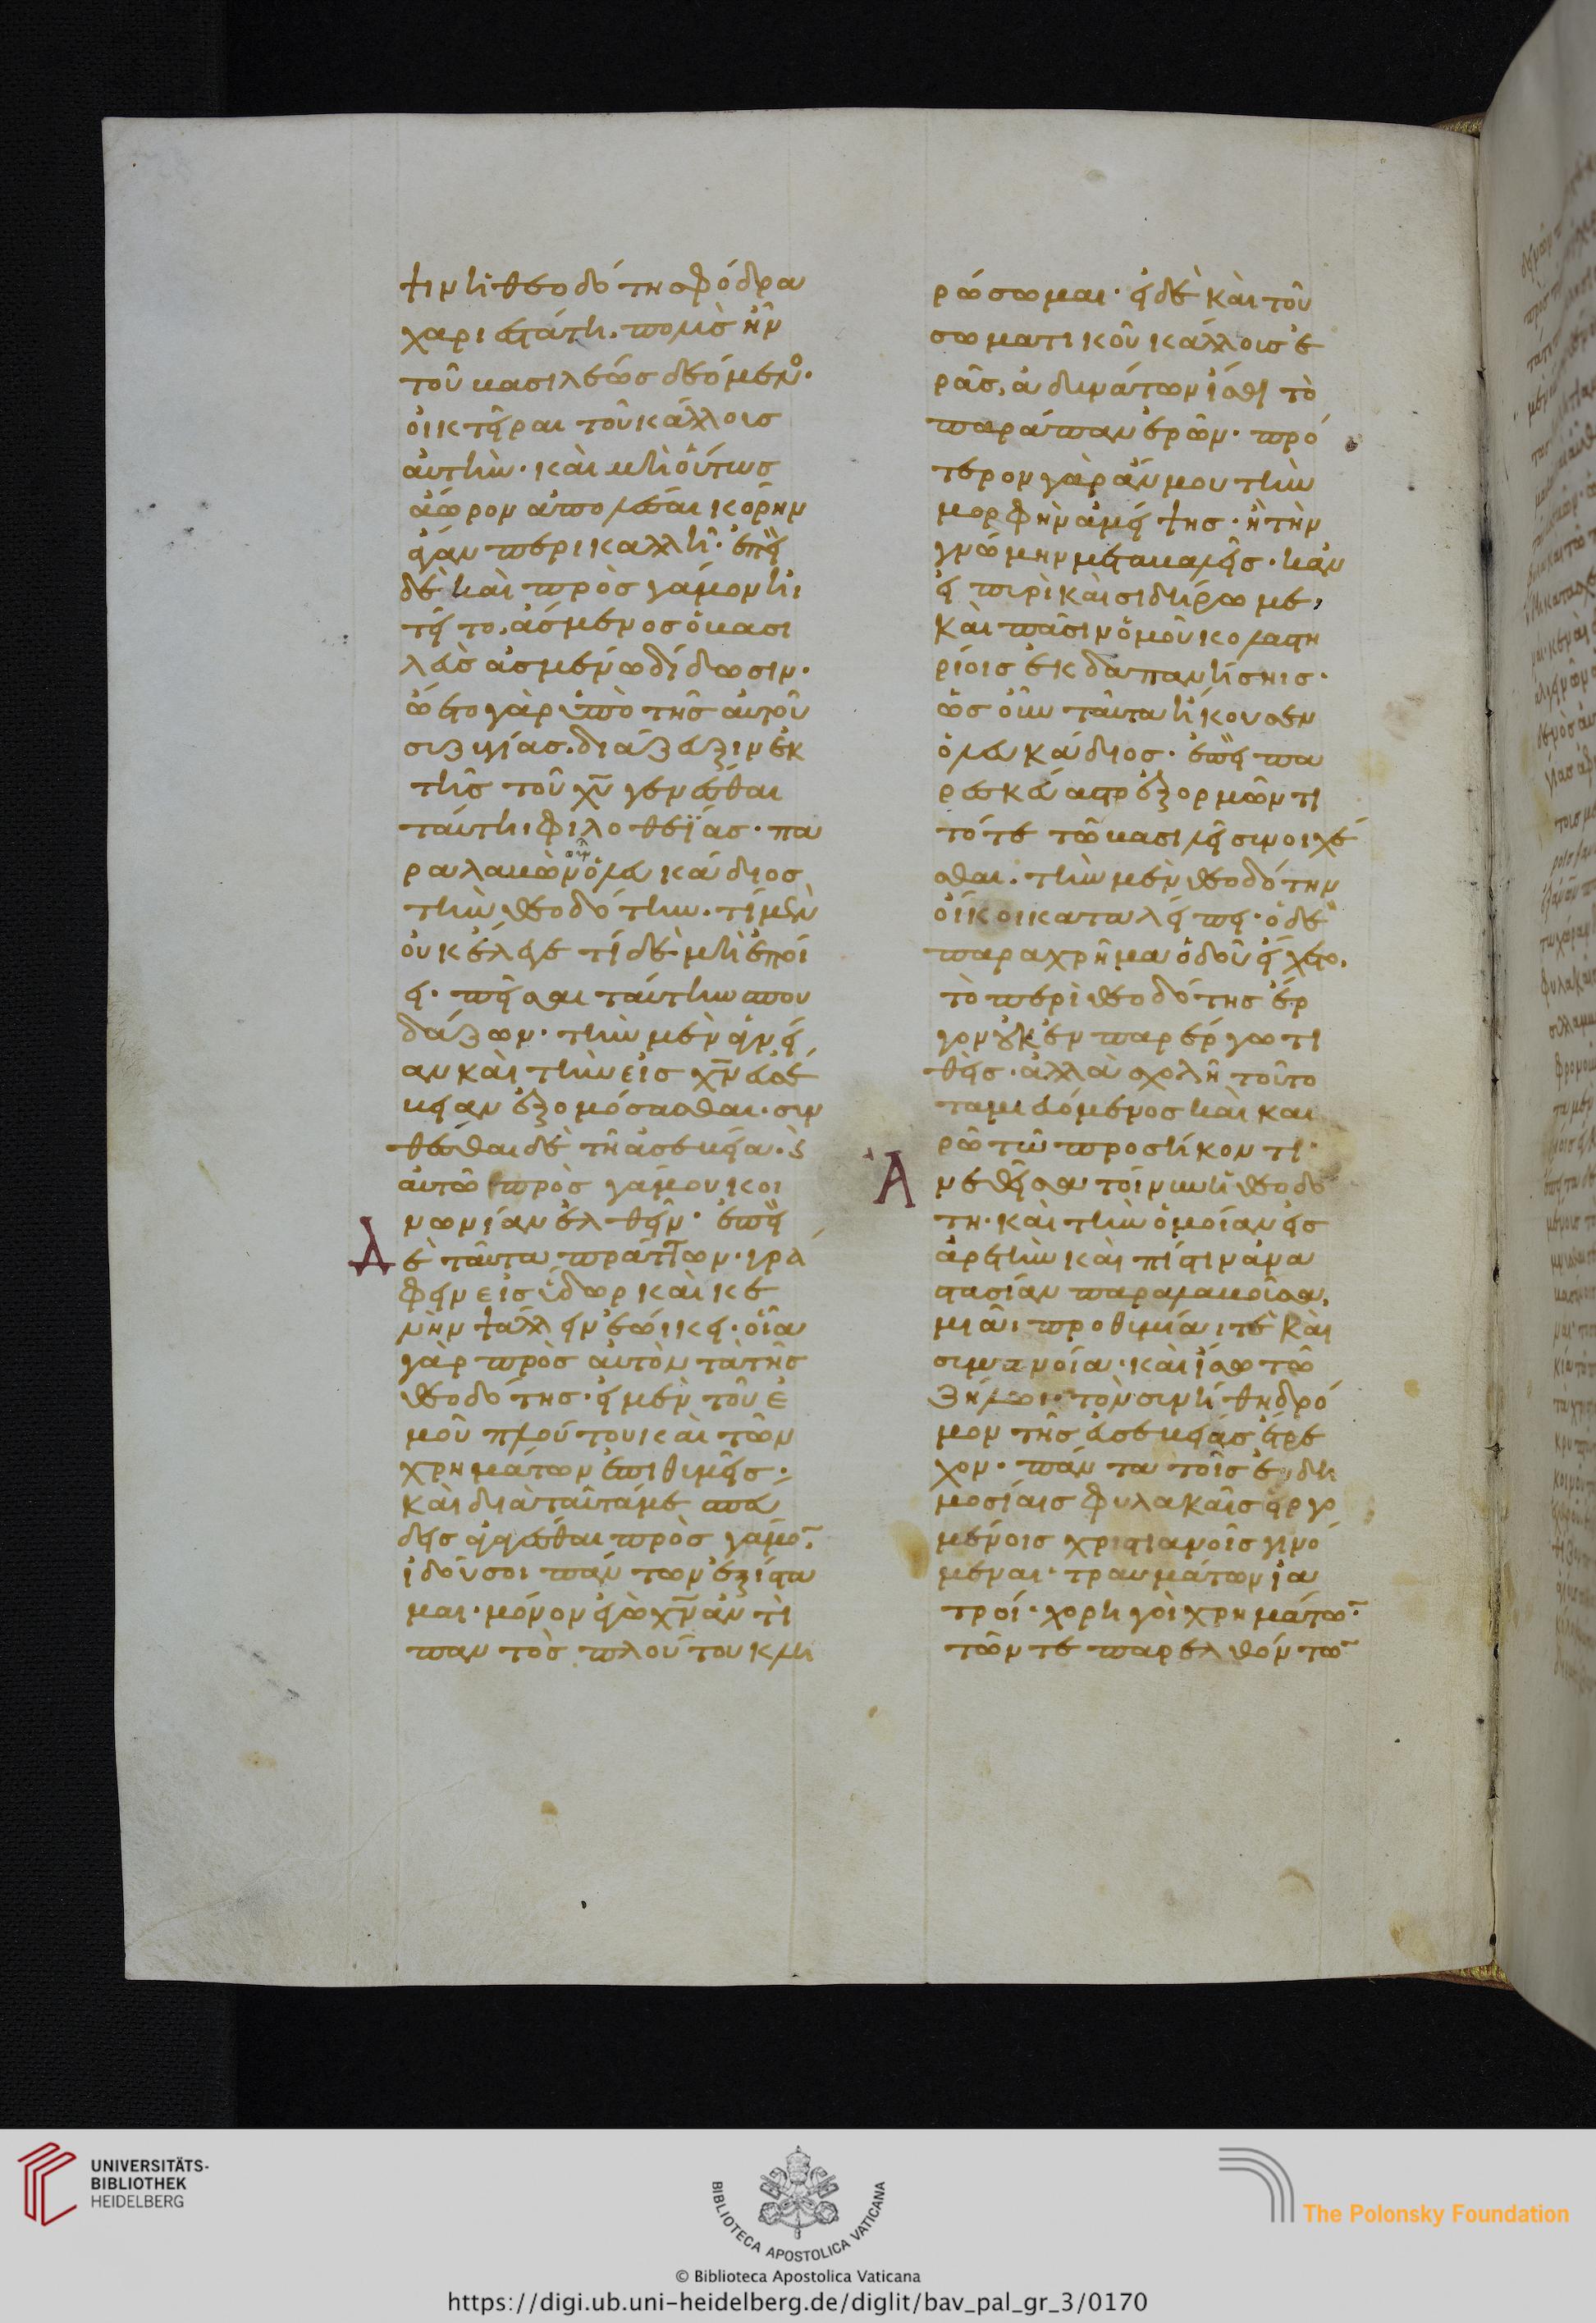 ψινὴ θεοδότη σφόδρα
χαριεστάτη. πολὺς ἦν
τοῦ βασιλέως δεόμενος·
οἰκτεῖραι τοῦ κάλλους
αὐτήν· καὶ μὴ οὕτως
ἄωρον ἀπολέσαι κόρην
ἄγαν περικαλλῆ· ἐπεὶ
δὲ καὶ πρὸς γάμον ἠι
τεῖτο, ἄσμενος ὁ βασι
λεὺς ἀσμένω δίδωσιν·
ὤετο γὰρ ὑπὸ τῆς αὐτοῦ
συζυγίας. διάζευξιν ἐκ
τῆς τοῦ χυ γενέσθαι
ταύτηι φιλοθεΐας· πα
ραλαβὼν οὖν ὁ λευκάδιος
τὴν θεοδότην. τί μὲν
οὐκ ἔλεγε τί δὲ μὴ ἐποί
ει· πεῖσαι ταύτην σπου
δάζων· τὴν μὲν ἁγνεί
αν καὶ τὴν εἰς χν εὐσέ
βειαν ἐξομόσασθαι. συν
θέσθαι δὲ τῆ ἀσεβεία. ϗ
αὐτῶ πρὸς γάμου κοι
νωνίαν ἐλθεῖν· ἐπεὶ
Δὲ ταῦτα πράττων. γρά
φειν εἰς ὕδωρ καὶ κε
νὴν ψάλλειν ἐώικει· οἷα
γὰρ πρὸς αὐτὸν τὰ τῆς
θεοδότης· εἰ μὲν τοῦ ἐ
μοῦ πλούτου καὶ τῶν
χρημάτων ἐπιθυμεῖς·
καὶ διὰ ταῦτά με σπεύ
δεις ἄγεσθαι πρὸς γάμον·
ἰδού σοι πάντων ἐξίστα
μαι· μόνον ἐγὼ χν ἀντὶ
παντὸς πλούτου κλη
ρώσωμαι· εἰ δὲ καὶ τοῦ
σωματικοῦ κάλλους ἐ
ρᾶς, ἀδυνάτων ἴσθι τὸ
παράπαν ἐρῶν· πρό
τερον γὰρ ἄν μου τὴν
μορφὴν ἀμείψης· ἢ τὴν
γνώμην μεταβαλεῖς· κἂν
εἰ πυρὶ καὶ σιδήρω με,
καὶ πᾶσιν ὁμοῦ κολαστη
ρίοις ἐκδαπανήσηις·
ὡς οὖν ταῦτα ἤκουσεν
ὁ λευκάδιος· ἐπεὶ πα
ρεσκεύαστο ἐξορμῶντι
τότε τῶ βασιλεῖ συνοιχέ
σθαι. τὴν μὲν θεοδότην
οἴκοι καταλείπει· ὁ δὲ
παραχρῆμα ὁδοῦ εἴχετο,
τὸ περὶ θεοδότης ἔρ
γον οὐκ ἐν παρέργω τι
θείς· ἀλλὰ σχολῆ τοῦτο
ταμιευόμενος καὶ και
ρῶ τῶ προσήκοντι·
Ἀνεθεῖσα τοίνυν ἡ θεοδό
τη· καὶ τὴν ὁμοίαν εἰς
ἀρετὴν καὶ πίστιν ἀνα
στασίαν παραλαβοῦσα,
μιᾶι προθυμία τὲ καὶ
συμπνοία· καὶ ἴσω τῶ
ζήλωι· τὸν συνήθη δρό
μον τῆς εὐσεβείας ἔτρε
χον· πάντα τοῖς ἐν δη
μοσίαις φυλακαῖς εἰργο
μένοις χριστιανοῖς γινό
μεναι· τραυμάτων ἰα
τροί· χορηγοὶ χρημάτων·
τῶν τε παρελθόντων
UNIVERSITÄTS-
BIBLIOTHEK
HEIDELBERG
BIBLIOTECA APOSTOLICA VATICANA
The Polonsky Foundation
© Biblioteca Apostolica Vaticana
https://digi.ub.uni-heidelberg.de/diglit/bav_pal_gr_3/0170